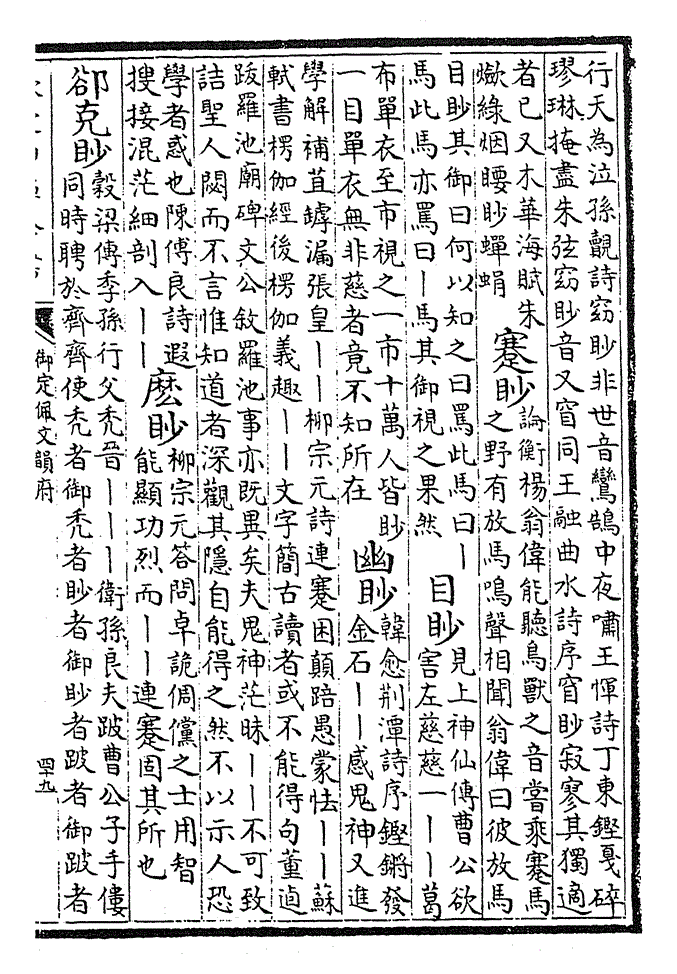 行天為泣孫覿詩窈眇非世音鸞鵠中夜嘯王惲詩丁東鏗戛碎
璆琳掩盡朱弦窈眇音又窅同王融曲水詩序窅眇寂寥其獨適
者已又木華海賦朱
㷿綠烟䁏眇蟬蜎
蹇眇
論衡楊翁偉能聽鳥獸之音嘗乘蹇馬
之野有放馬鳴聲相聞翁偉曰彼放馬
目眇其御曰何以知之曰罵此馬曰丨
馬此馬亦罵曰丨馬其御視之果然
目眇
見上神仙傳曹公欲
害左慈慈一丨丨葛
布單衣至市視之一市十萬人皆眇
一目單衣無非慈者竟不知所在
幽眇
韓愈荆潭詩序鏗鏘發
金石丨丨感鬼神又進
學解補苴罅漏張皇丨丨柳宗元詩連蹇困顛踣愚蒙怯丨丨蘇
軾書楞伽經後楞伽義趣丨丨文字簡古讀者或不能得句董逌
跋羅池廟碑文公敘羅池事亦既異矣夫鬼神茫昧丨丨不可致
詰聖人闕而不言惟知道者深觀其隱自能得之然不以示人恐
學者惑也陳傅良詩遐
搜接混茫細剖入丨丨
麽眇
柳宗元答問卓詭倜儻之士用智
能顯功烈而丨丨連蹇固其所也
郤克眇
穀梁傳季孫行父禿晉丨丨丨衛孫良夫跛曹公子手僂
同時聘於齊齊使禿者御禿者眇者御眇者跛者御跛者
御定佩文韻府
四十九